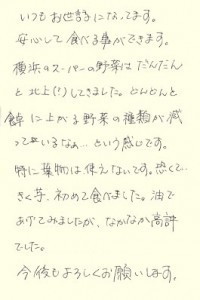 いつもお世話になってます。
安心して食べる事ができます。
横浜のスーパーの野菜はだんだん
と北上(!)してきました。どんどんと
食卓に上がる野菜の種類が減
っているなぁ…という感じです。
特に葉物は使えないです。恐くて…
きく芋、初めて食べました。油で
あげてみましたが、なかなか高評
でした。
今後もよろしくお願いします。